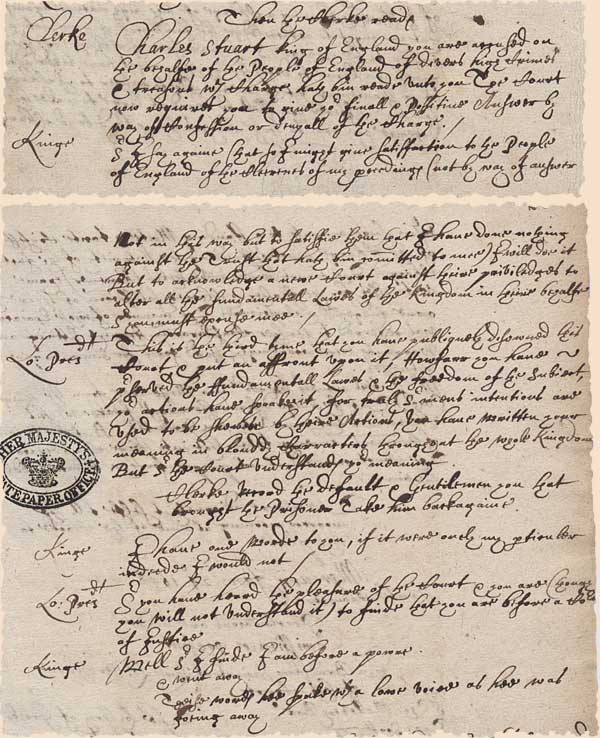 Then the Clerke read
Clerke Charles Stuart king of England you are accused on
the behalfe of the People of England of divers high Crimes
& treasons wch Charge hath bin reade unto you The Court
now requires you to give yor finall & Positive Answer by
way of Confession or Denyall of the Charge./
Kinge Sr I say againe that so I might give satisfaction to the People
of England of the Cleerenes of my proceedings (not by way of answer
Not in this way but to satisfie them that I have done nothing
against the Trust that hath bin comitted to mee) I will doe it
But to acknowledge a new Court against theire priviledges to
alter all the fundamentall Lawes of the Kingdom in theire behalfe
Sr you must excuse mee./
Lo: Presdt This is the third tyme that you have publiquely disowned this
Court & put an affront upon it, Howfarr you have
pserved the ffundamentall Lawes & the freedom of the Subiect,
yor actions have spoken it for truly Sr mens intentions are
Used to be shewen by theire Actions, you have Written your
meaning in bloody Characters throughout the whole Kingdom
But Sr the Court Understands yor meaning
Clerke Record the default & Gentilemen you that
brought the Prisoner Take him back againe
Kinge I have one Worde to you, if it were onely my pticuler
indeede I would not/
Lo: Presdt Sr you have heard the pleasure of the Court & you are (though
you will not Understand it) to finde that you are before a Court
of Justice
Kinge Well Sr I finde I am before a power
& went away
Theise words hee spake wth a lowe voice as hee was
going away
HER MAJESTY'S
STATE PAPER OFFICE